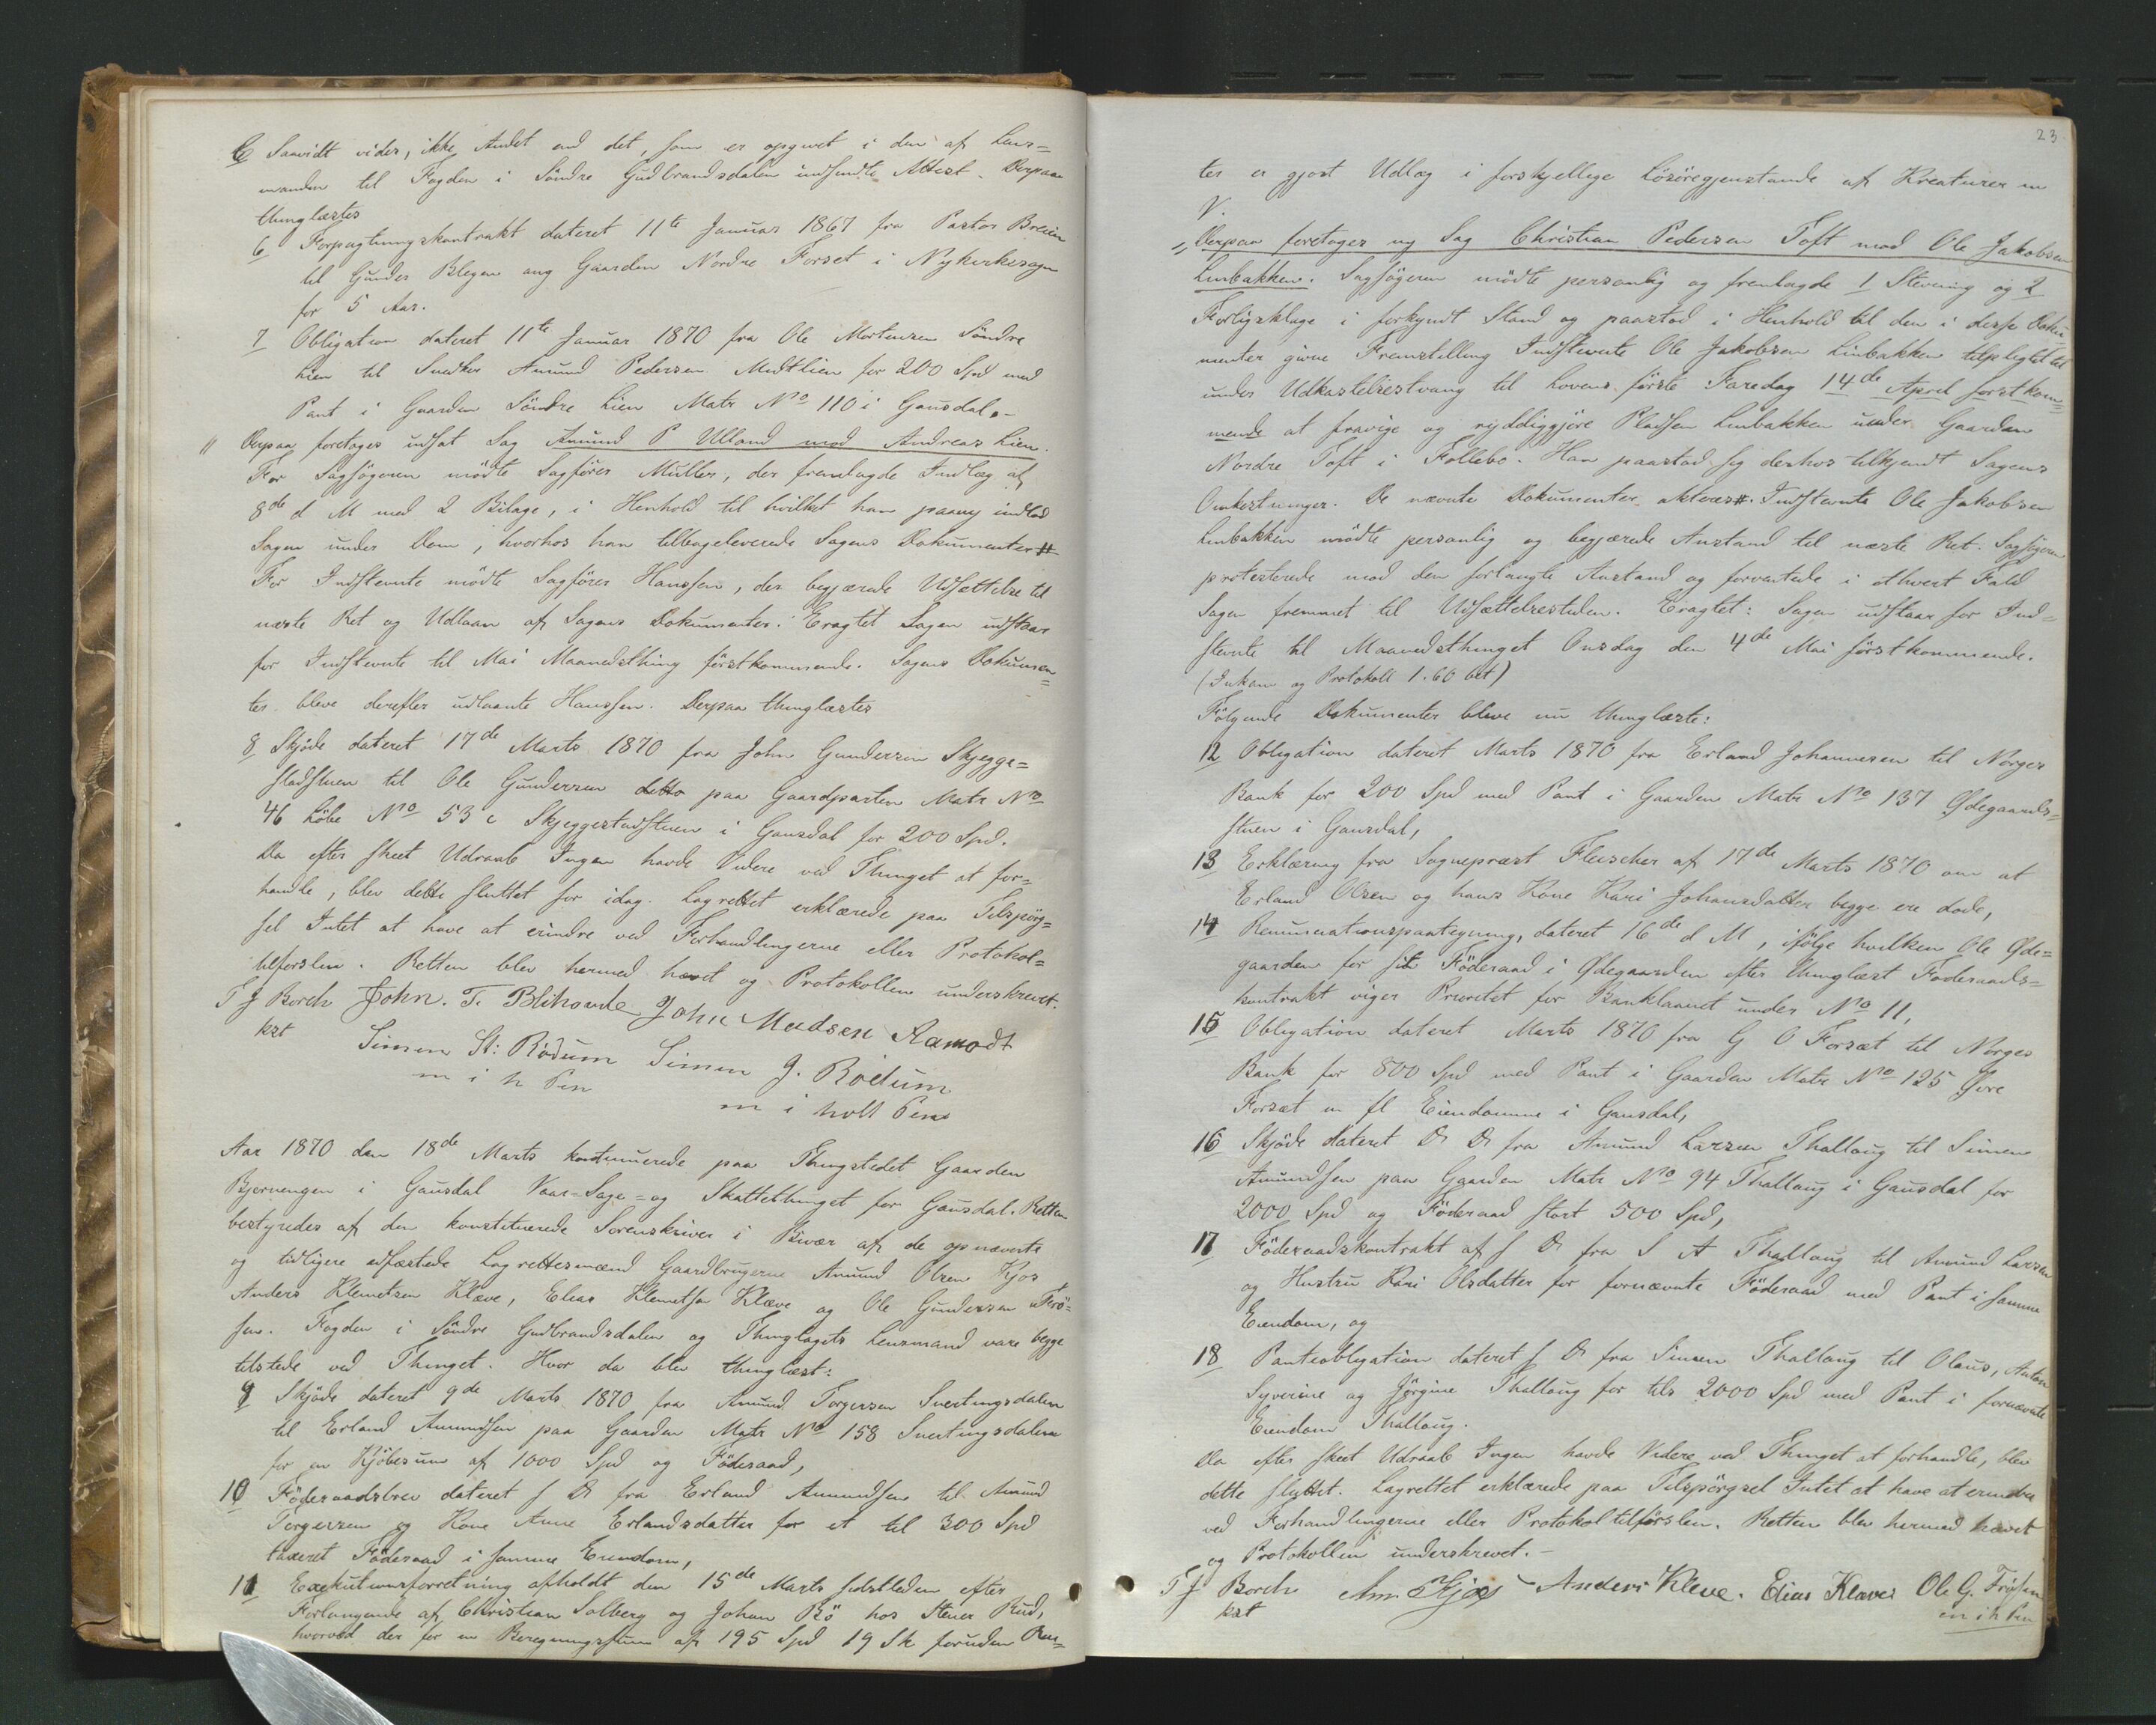 Saavidt vides, ikke Andet end det, som er opgivet i den af Lens=
manden til Fogden i Söndre Gudbrandsdalen indsendte Attest. Derpaa
thinglæstes
6 Forpagtningskontrakt dateret 11te Januar 1867 fra Pastor Breien
til Gunder Blegen ang Gaarden Nordre Forset i Nykirkesogn
for 5 Aar.
7 Obligation dateret 11te Januar 1870 fra Ole Mortensen Söndre
Lien til Snedker Amund Pedersen Medtlien for 200 Spd med
Pant i Gaarden Söndre Lien Matr No 110 i Gausdal.-
" Derpaa foretages udsat Sag Amund P Ulland mod Andreas Lien.
For Sagsögeren mödte Sagförer Müller, der fremlagde Indlæg af
8de d M med 2 Bilage, i Henhold til hvilket han paany indlod
Sagen under Dom, hvorhos han tilbageleverede Sagens Dokumenter #
For Indstevnte mödte Sagförer Hanssen, der begjærede Udsættelse til
næste Ret og Udlaan af Sagens Dokumenter. Eragtet Sagen udstaar
for Indstevnte til Mai Maanedsthing förstkommende. Sagens Dokumen=
ter bleve derefter udlaante Hanssen. Derpaa thinglæstes
8 Skjöde dateret 17de Marts 1870 fra John Gundersen Skjegge=
stadstuen til Ole Gundersen detto paa Gaardparten Matr No
46 Löbe No 53 c Skjeggestadstuen i Gausdal for 200 Spd.
Da efter skeet Udraab Ingen havde Videre ved Thinget at for=
handle, blev dette sluttet for idag. Lagrettet erklærede paa Tilspörg=
sel Intet at have at erindre ved Forhandlingerne eller Protokol=
tilförslen. Retten blev hermed hævet og Protokollen underskrevet.
T J Borch John. T. Blihovde John Madsen Aamodt
kst Simen St: Rödum Simen J. Rödum
m i h Pen
m i holt Pen
Aar 1870 den 18de Marts kontinuerede paa Thingstedet Gaarden
Bjervengen i Gausdal Vaar-Sage= og Skattethinget for Gausdal. Retten
bestyredes af den konstituerede Sorenskriver i Bivær af de opnævnte
og tidligere edfæstede Lagrettesmænd Gaardbrugerne Amund Olsen Kjos
Anders Klemetsen Klæve, Elias Klemetsen Klæve og Ole Gundersen Frö=
sen. Fogden i Söndre Gudbrandsdalen og Thinglagets Lensmand vare begge
tilstede ved Thinget. Hvor da blev thinglæst:
9 Skjöde dateret 9de Marts 1870 fra Amund Torgersen Svertingsdalen
til Erland Amundsen paa Gaarden Matr No 158 Svertingsdalen
for en Kjöbesum af 1000 Spd og Föderaad,
10 Föderaadsbrev dateret s D fra Erland Amundsen til Amund
Torgersen og Kone Anne Erlandsdatter for et til 300 Spd
taxeret Föderaad i samme Eiendom,
11 Exekutionsforretning afholdt den 15de Marts sidstleden efter
Forlangende af Christian Solberg og Johan Bö hos Stener Rud,
hvorved der for en Beregningssum af 195 Spd 19 Sk foruden Ren=
23
ter er gjort Udlæg i forskjellige Lösöregjenstande af Kreaturer m
V.
" Derpaa foretages ny Sag Christian Pedersen Toft mod Ole Jakobsen
Linbakken. Sagsögeren mödte personlig og fremlagde 1 Stevning og 2
Forligsklage i forkyndt Stand og paastod i Henhold til den i disse Doku
menter givne Fremstilling Indstevnte Ole Jakobsen Linbakken tilpligtet til
under Udkastelsestvang til Lovens förste Faredag 14de April förstkom=
mende at fravige og ryddiggjöre Pladsen Linbakken under Gaarden
Nordre Toft i Follebo. Han paastod sig derhos tilkjendt Sagens
Omkostninger. De nævnte Dokumenter aktvres #. Indstevnte Ole Jakobsen
Linbakken mödte personlig og begjærede Anstand til næste Ret. Sagsögeren
protesterede mod den forlangte Anstand og forventede i ethvert Fald
Sagen fremmet til Udsættelsestiden. Eragtet: Sagen udstaar for Ind=
stevnte til Maanedsthinget Onsdag den 4de Mai förstkommende.
(Inkam og Protokoll 1.60 bet)
Fölgende Dokumenter bleve nu thinglæste:
12 Obligation dateret Marts 1870 fra Erland Johannesen til Norges
Bank for 200 Spd med Pant i Gaarden Matr No 137 Ödegaards=
stuen i Gausdal,
13 Erklæring fra Sognepræst Fleischer af 17de Marts 1870 om at
Erland Olsen og hans Kone Kari Johansdatter begge ere döde,
14 Renunciationspaategning, dateret 16de d M, ifölge hvilken Ole Öde=
gaarden for sit Föderaad i Ödegaarden efter thinglæst Föderaads=
kontrakt viger Prioritet for Banklaanet under No 11,
15 Obligation dateret Marts 1870 fra G O Forsæt til Norges
Bank for 800 Spd med Pant i Gaarden Matr No 125 Övre
Forsæt m fl Eiendomme i Gausdal,
16 Skjöde dateret D D fra Amund Larsen Thallaug til Simen
Amundsen paa Gaarden Matr No 94 Thallaug i Gausdal for
2000 Spd og Föderaad stort 500 Spd,
17 Föderaadskontrakt af s D fra S A Thallaug til Amund Larsen
og Hustru Kari Olsdatter for fornævnte Föderaad med Pant i samme
Eiendom, og
18 Panteobligation dateret s D fra Simen Thallaug til Olaus, Anton
Syverine og Jörgine Thallaug for tils 2000 Spd med Pant i fornævnte
Eiendom Thallaug.
Da efter skeet Udraab Ingen havde Videre ved Thinget at forhandle, blev
dette sluttet. Lagrettet erklærede paa Tilspörgsel Intet at have at erindre
ved Forhandlingerne eller Protokoltilförslen. Retten blev hermed hævet
og Protokollen underskrevet.-
T J Borch Am. Kjos Anders Kleve. Elias Klæve Ole G. Frösen
kst
m i h Pen